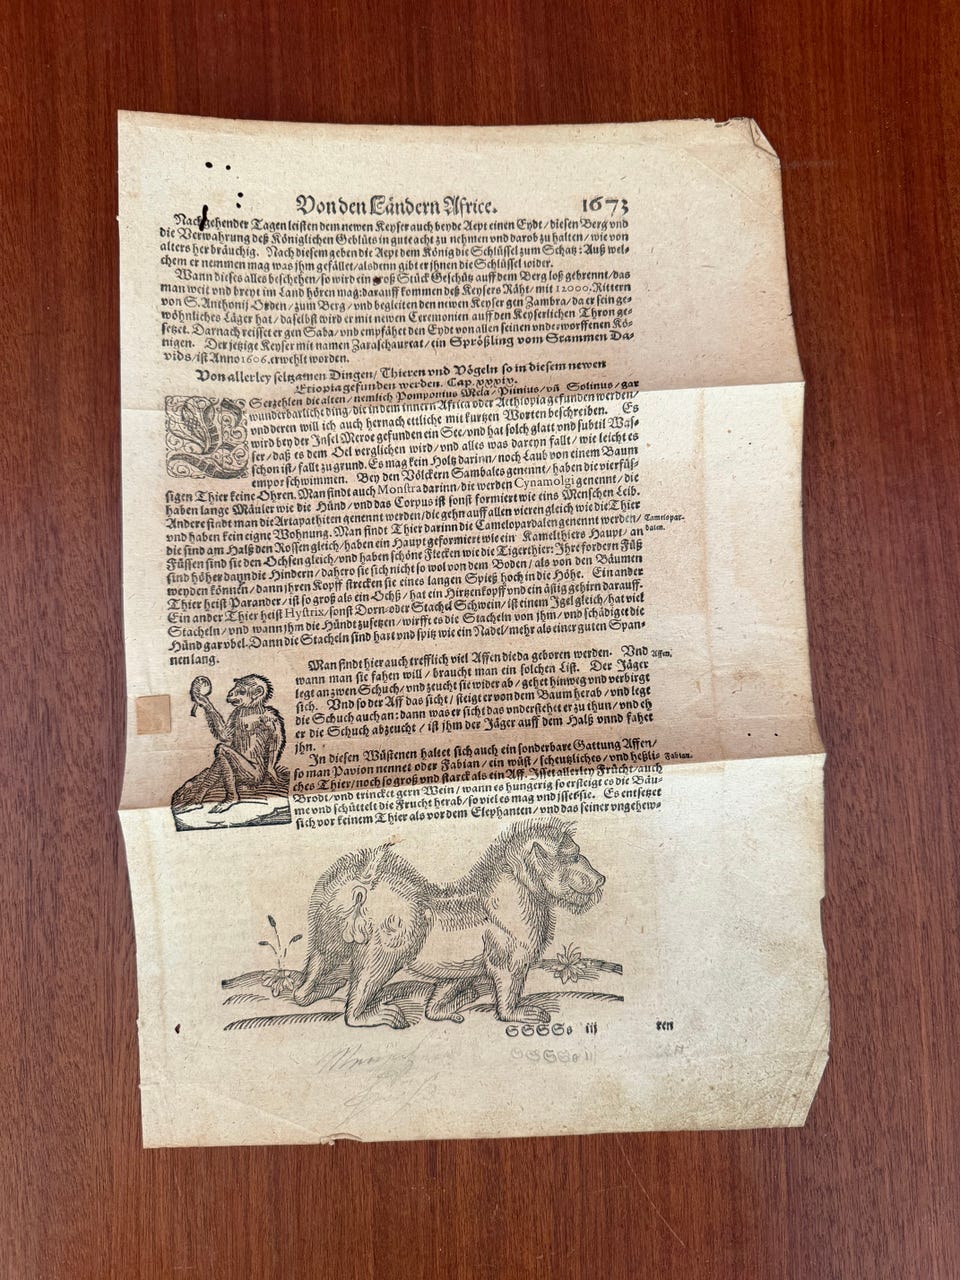 Von den Ländern Africe. 1673
Nachgehender Tagen leisten dem newen Keyser auch beyde Aept einen Eydt / diesen Berg vnd
die Verwahrung deß Königlichen Geblüts in gute acht zu nehmen vnd darob zu halten / wie von
alters her bräuchig. Nach diesem geben die Aept dem König die Schlüssel zum Schatz: Auß wel-
chem er nemmen mag was jhm gefället / alsdenn gibt er jhnen die Schlüssel wider.
Wann dieses alles beschehen / so wird ein groß Stück Geschütz auff dem Berg loß gebrennt / das
man weit vnd breyt im Land hören mag: darauff kommen deß Keysers Räht / mit 12000. Rittern
von S. Anthonij Orden / zum Berg / vnd begleiten den newen Keyser gen Zambra / da er sein ge-
wöhnliches Läger hat / daselbst wird er mit newen Ceremonien auff den Keyserlichen Thron ge-
setzet. Darnach reisset er gen Saba / vnd empfähet den Eydt von allen seinen vnderworffenen Kö-
nigen. Der jetzige Keyser mit namen Zaraschaureat / ein Sprößling vom Stammen Da-
vids / ist Anno 1606. erwehlt worden.
Von allerley seltzamen Dingen / Thieren vnd Vögeln so in diesem newen
Etiopia gefunden werden. Cap. xxxiv.
ES erzehlen die alten / nemlich Pomponius Mela / Plinius / vñ Solinus / gar
wunderbarliche ding / die in dem innern Africa oder Aethiopia gefunden werden /
vnd deren will ich auch hernach ettliche mit kurtzen Worten beschreiben. Es
wird bey der Insel Meroe gefunden ein See / vnd hat solch glatt vnd subtil Was-
ser / daß es dem Oel verglichen wird / vnd alles was dareyn fallt / wie leicht es
schon ist / fallt zu grund. Es mag kein Holtz darinn / noch Laub von einem Baum
empor schwimmen. Bey den Völckern Sambales genennt / haben die vierfüs-
sigen Thier keine Ohren. Man findt auch Monstra darinn / die werden Cynamolgi genennt / die
haben lange Mäuler wie die Hünd / vnd das Corpus ist sonst formiert wie eines Menschen Leib.
Andere findt man die Artapathiten genennt werden / die gehn auff allen vieren gleich wie die Thier
vnd haben kein eigne Wohnung. Man findt Thier darinn die Camelopardalen genennt werden / Camelopar-
die sind am Halß den Rossen gleich / haben ein Haupt geformiert wie ein Kamelthiers Haupt / an dalen.
Füssen sind sie den Ochsen gleich / vnd haben schöne Flecken wie die Tigerthier: Ihre fordern Füß
sind höher dann die Hindern / dahero sie sich nicht so wol von dem Boden / als von den Bäumen
weyden können / dann jhren Kopff strecken sie eines langen Spieß hoch in die Höhe. Ein ander
Thier heist Parander / ist so groß als ein Ochß / hat ein Hirtzenkopff vnd ein ästig gehirn darauff.
Ein ander Thier heist Hystrix / sonst Dorn- oder Stachel Schwein / ist einem Jgel gleich / hat viel
Stacheln / vnd wann jhm die Hündt zusetzen / wirfft es die Stacheln von jhm / vnd schädiget die
Hünd gar vbel. Dann die Stacheln sind hart vnd spitz wie ein Nadel / mehr als einer guten Span-
nen lang.
Man findt hier auch trefflich viel Affen die da geboren werden. Vnd Affen.
wann man sie fahen will / braucht man ein solchen List. Der Jäger
legt an zwen Schuch / vnd zeucht sie wider ab / gehet hinweg vnd verbirgt
sich. Vnd so der Aff das sicht / steiget er von dem Baum herab / vnd legt
die Schuch auch an: dann was er sicht das vnderstehet er zu thun / vnd eh
er die Schuch abzeucht / ist jhm der Jäger auff dem Halß vnnd fahet
jhn.
In diesen Wüstenen haltet sich auch ein sonderbare Gattung Affen /
so man Pavion nennet oder Fabian / ein wüst / scheutzliches / vnd heßli- Fabian.
ches Thier / noch so groß vnd starck als ein Aff. Isset allerley Frücht / auch
Brodt / vnd trincket gern Wein / wann es hungerig so ersteigt es die Bäu-
me vnd schüttelt die Frucht herab / so viel es mag vnd jsset sie. Es entsetzet
sich vor keinem Thier als vor dem Elephanten / vnd das seiner vngehew-
SSSSs iij ren